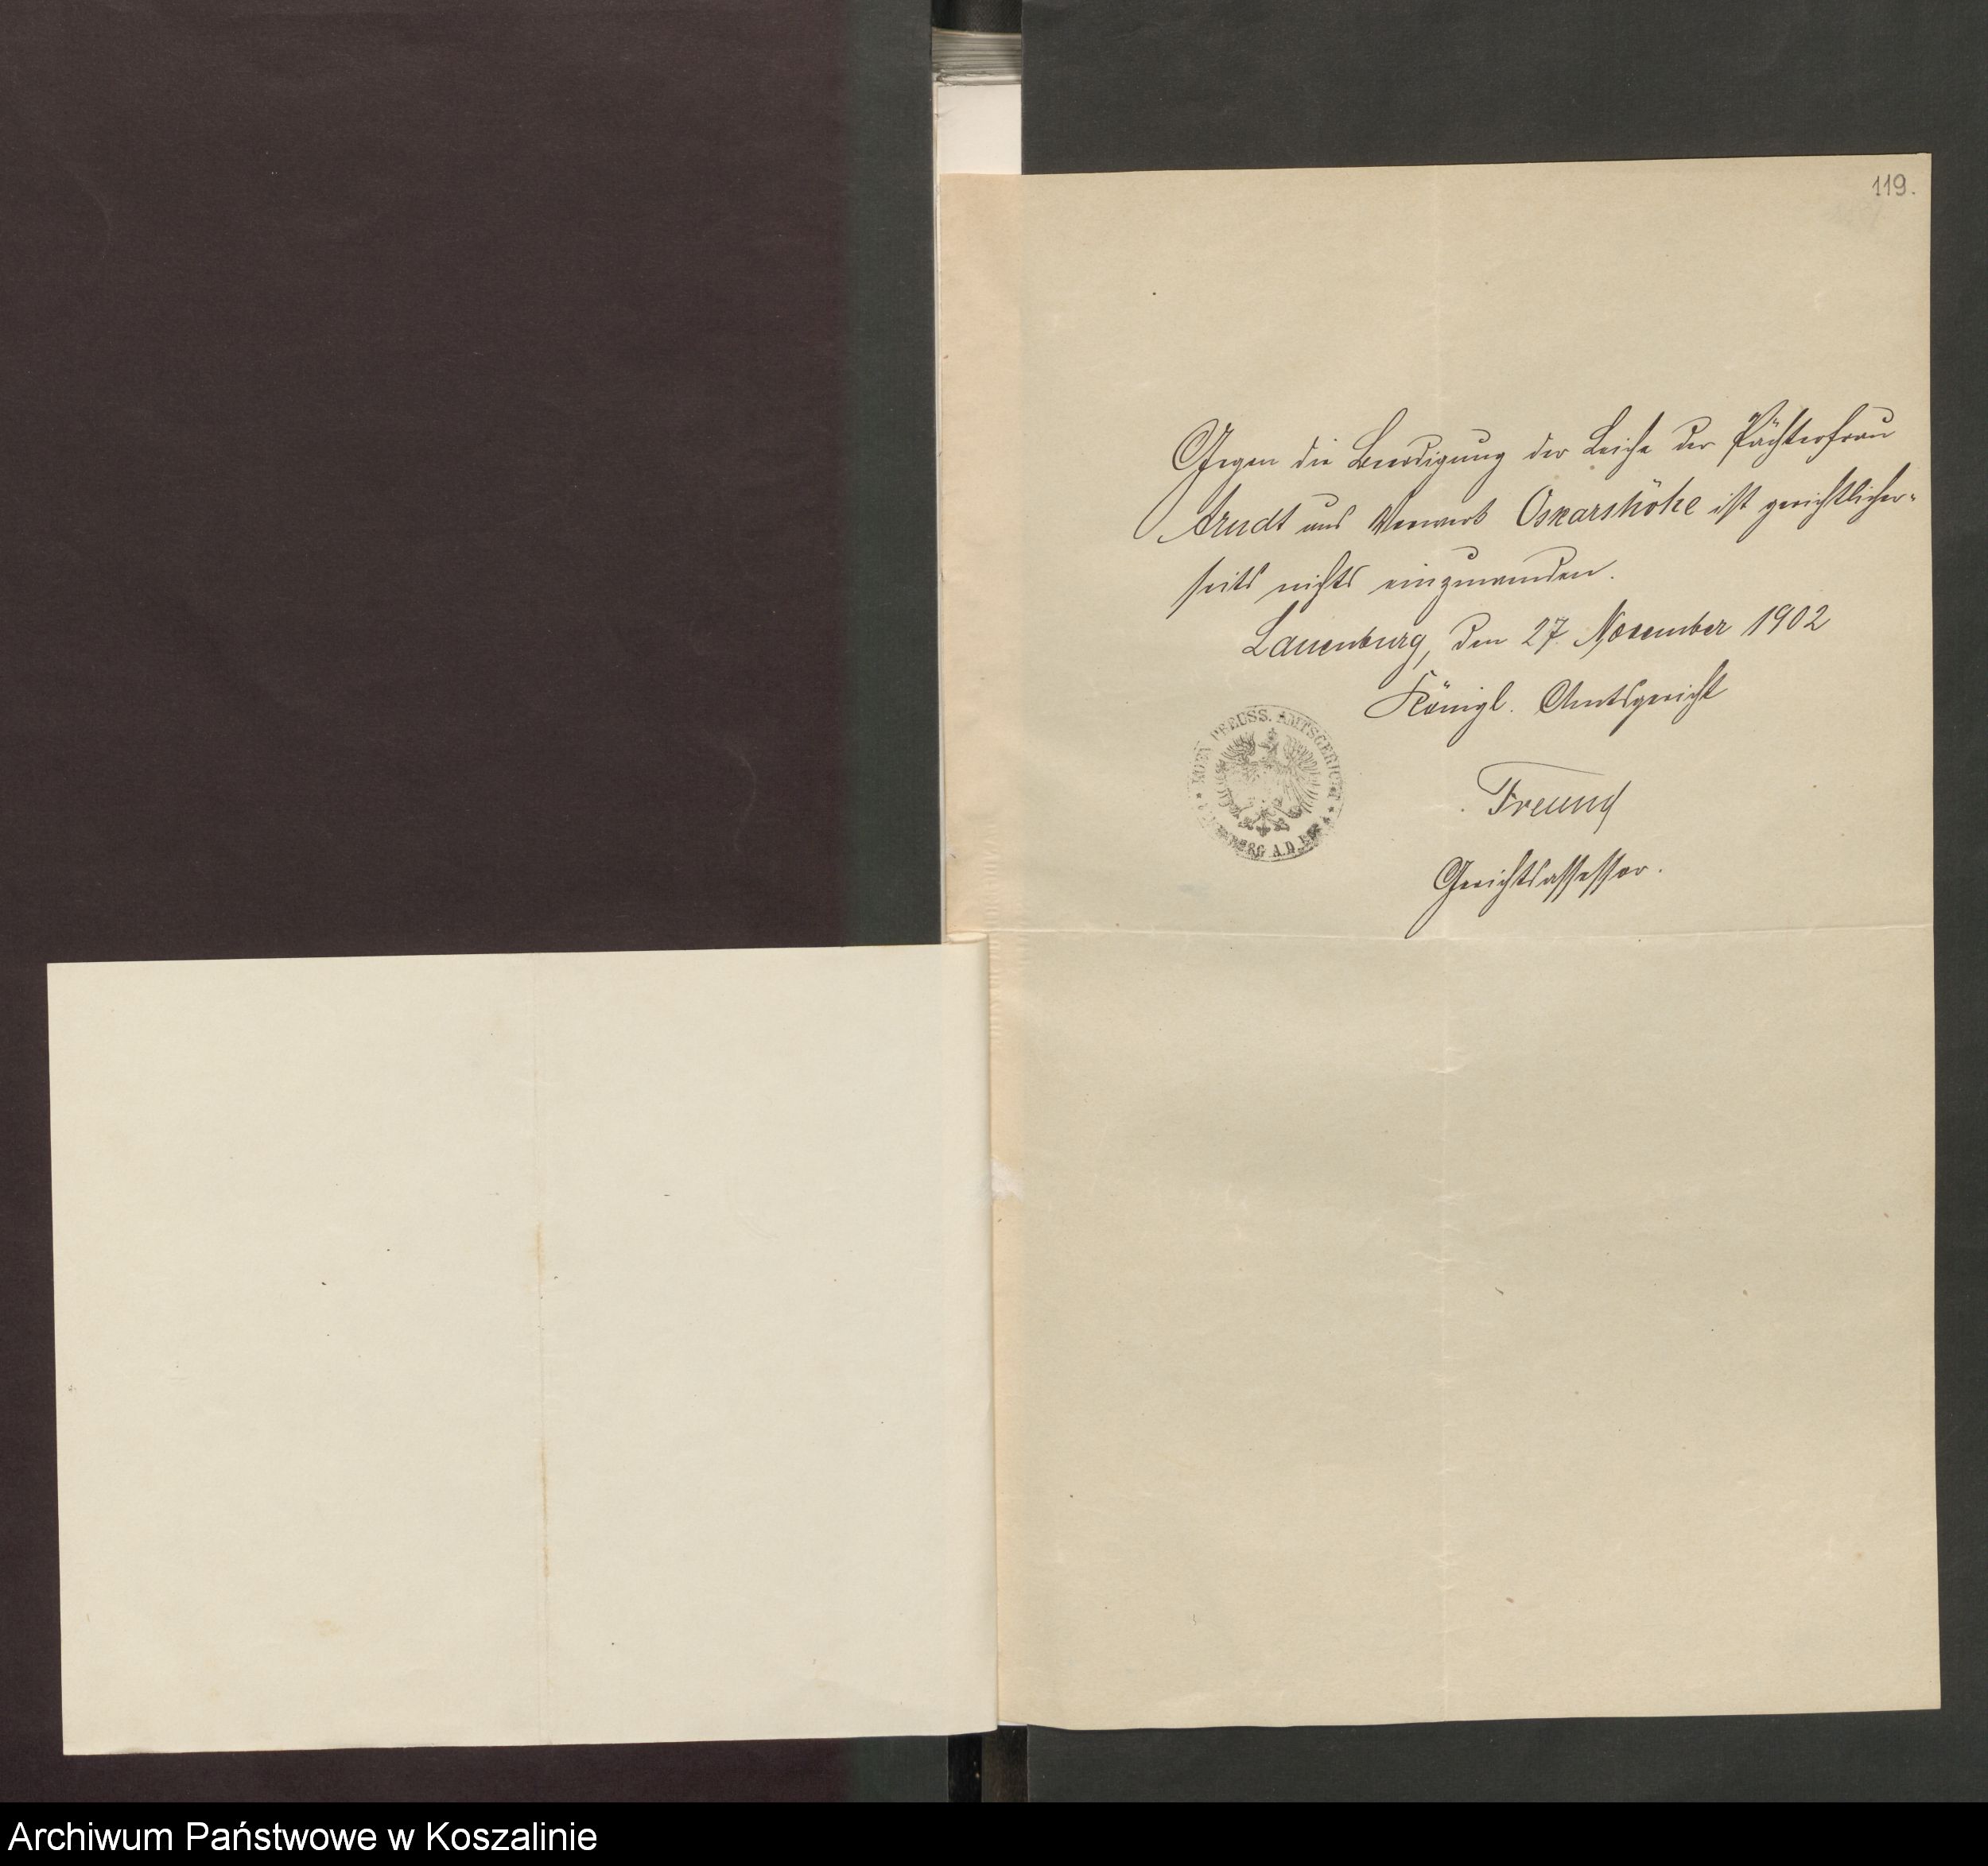 119.
Gegen die Beerdigung der Leiche der Pächterfrau
Arndt aus Vorwerk Oskarshöhe ist gerichtlicher-
seits nichts einzuwenden.
Lauenburg, den 27. November 1902
Königl. Amtsgericht
Freund
Gerichtsassessor.
PREUSS. AMTSGERICHT
Archiwum Państwowe w Koszalinie